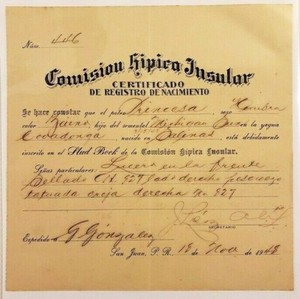 Núm. 446
Comision Hipica Insular
CERTIFICADO
DE REGISTRO DE NACIMIENTO
Se hace constar que el potro Princesa sexo Hembra
color Zaino, hijo del semental Michigan con la yegua
Covadonga, nacido en Salinas, está debidamente
inscrito en el Stud Book de la Comisión Hípica Insular.
Señas particulares: Lucero en la frente
Sellado CH. 327 lado derecho pescuezo
tatuada oreja derecha No 327
SECRETARIO
Expedido G González
San Juan, P. R., 18 Nov 1948